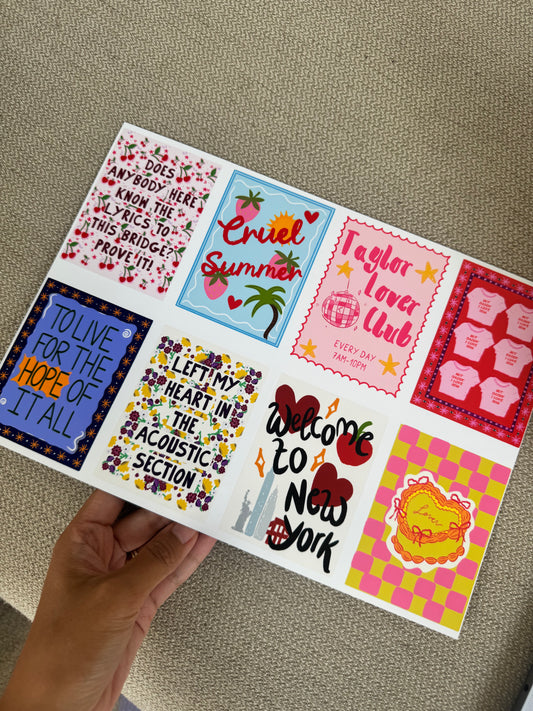 DOES
ANYBODY HERE
KNOW THE
LYRICS TO
THIS BRIDGE?
PROVE IT!
Cruel
Summer
Taylor
Lover
Club
EVERY DAY
7AM-10PM
TO LIVE
FOR THE
HOPE OF
IT ALL
LEFT MY
HEART IN
THE
ACOUSTIC
SECTION
Welcome
to
New
York
Lover